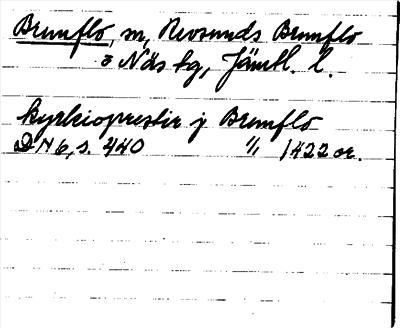 Brunflo, sn, Revsunds Brunflo
o Näs tg, Jämtl. l.
kyrkioprestir j Brunflo
DN 6, s. 440 1/1 1422 or.